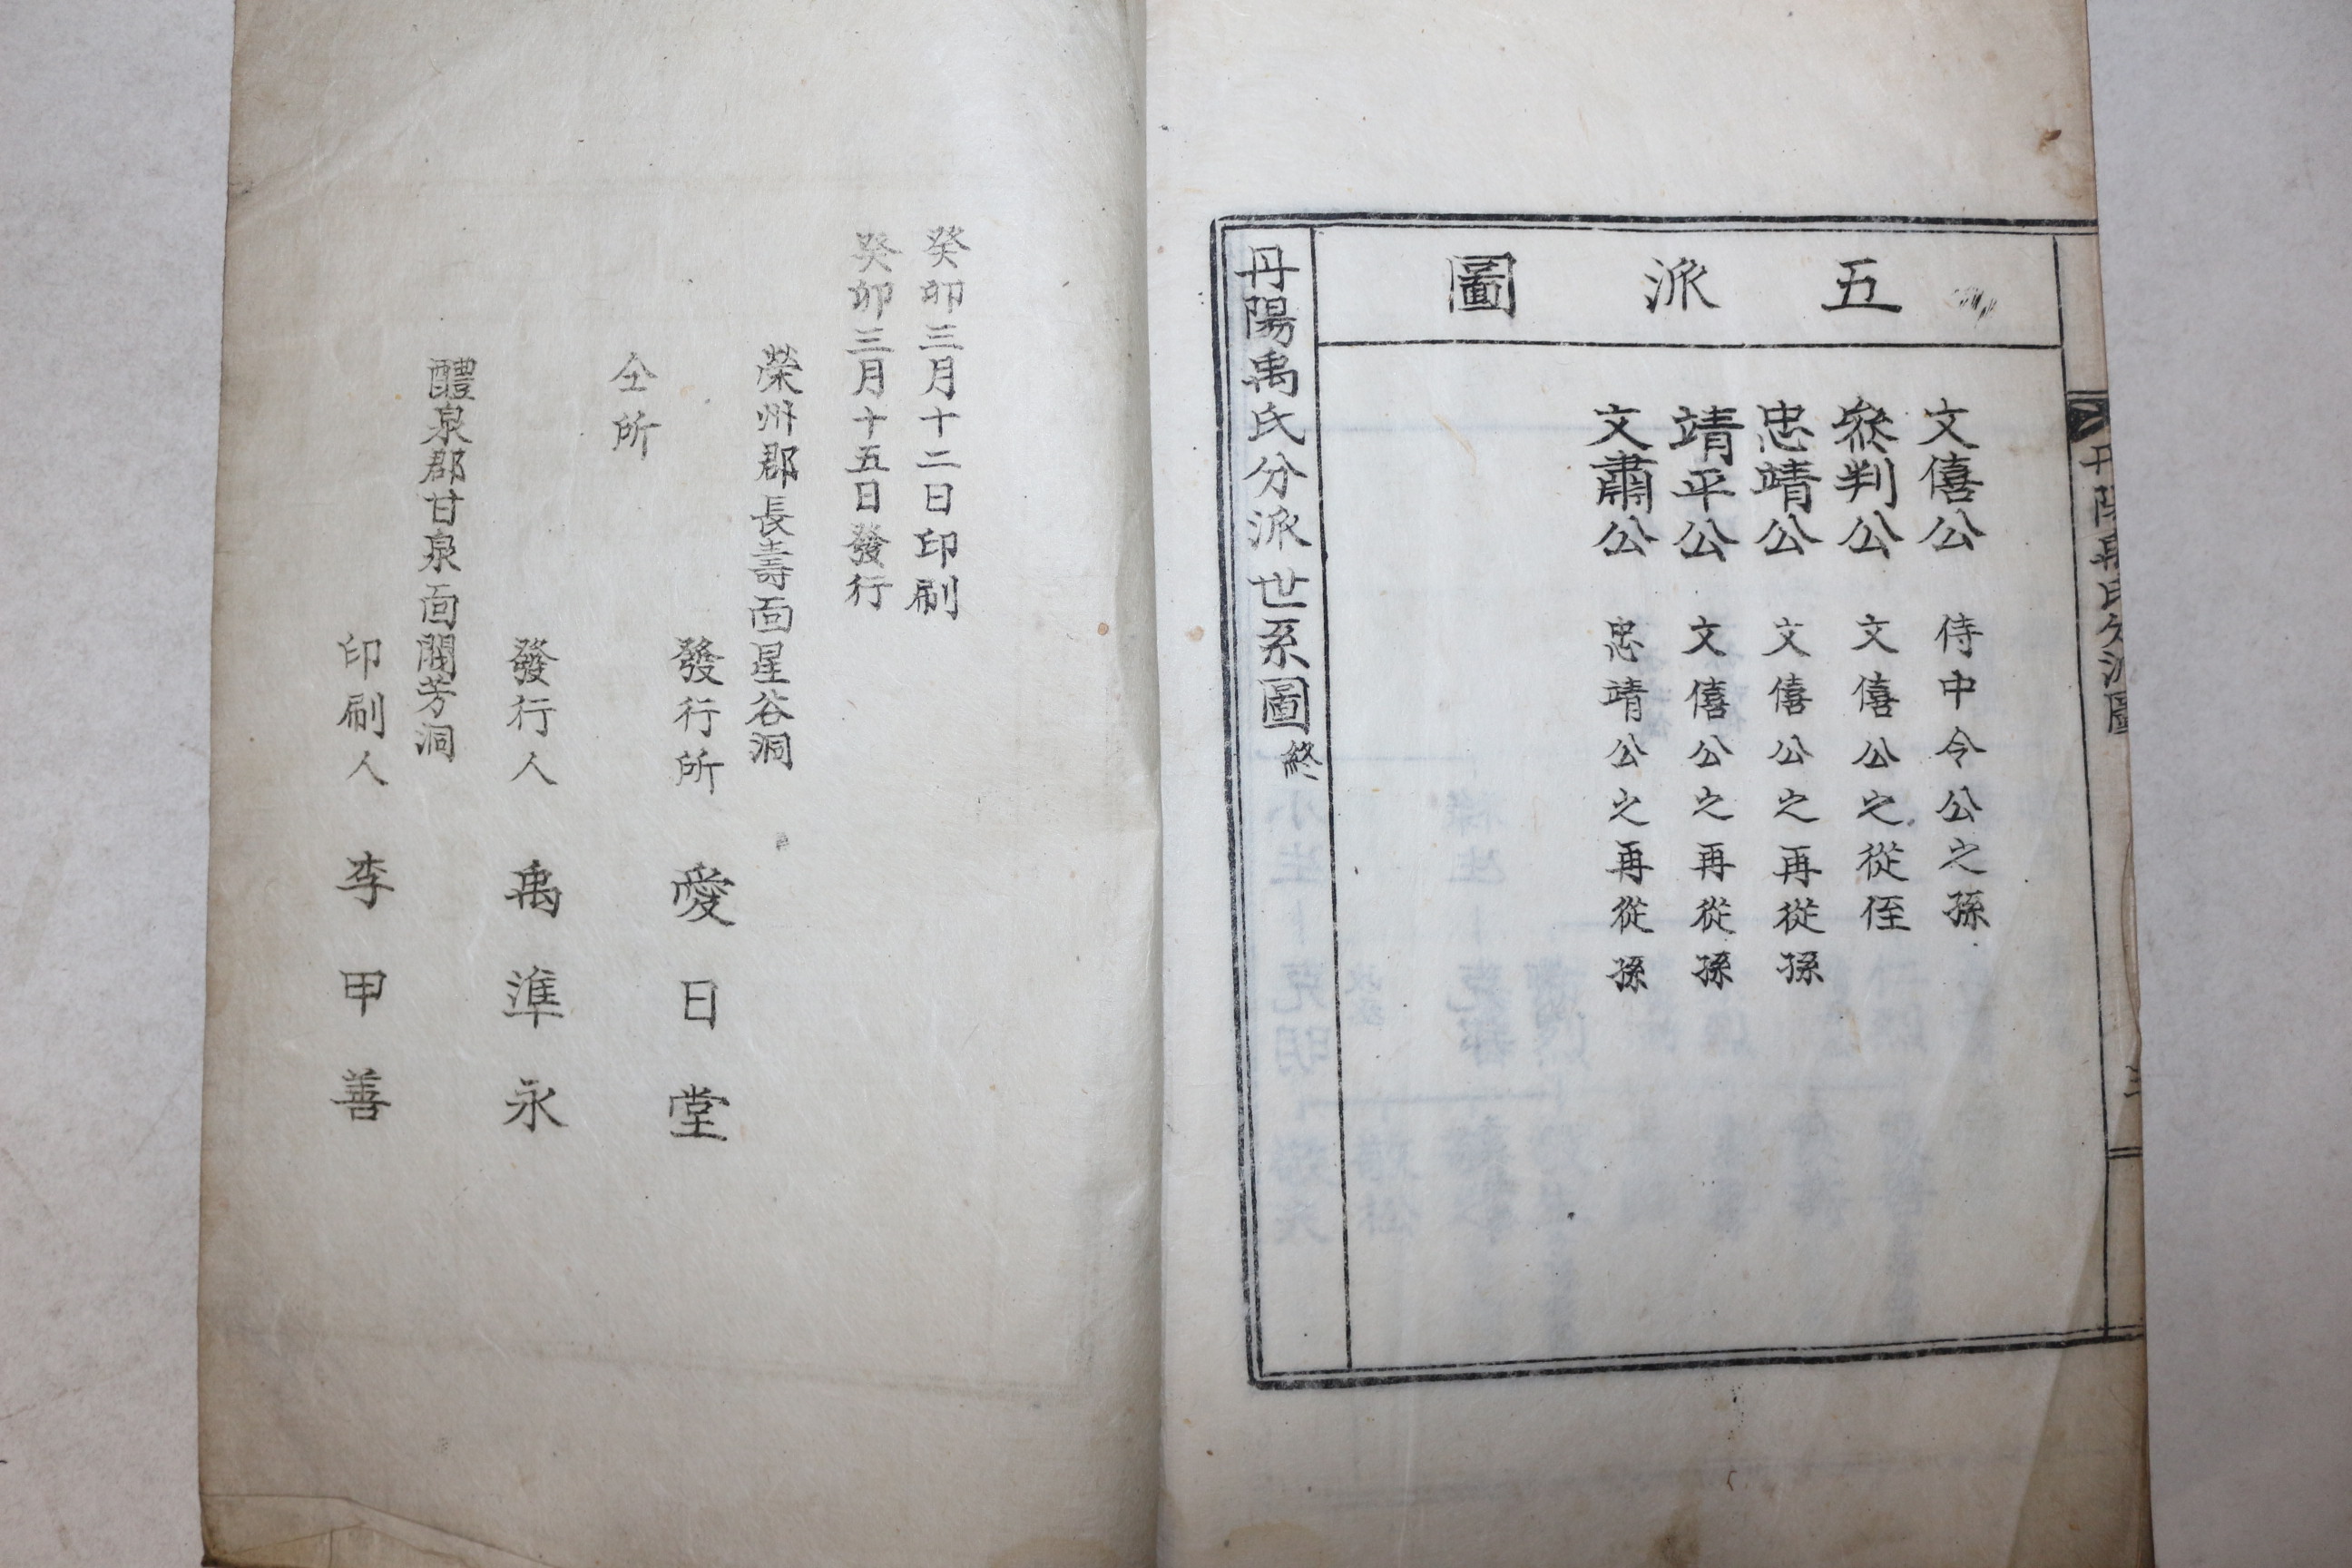 五派圖
文僖公 侍中令公之孫
叅判公 文僖公之從侄
忠靖公 文僖公之再從孫
靖平公 文僖公之再從孫
文肅公 忠靖公之再從孫
丹陽禹氏分派世系圖終
癸卯三月十二日印刷
癸卯三月十五日發行
榮州郡長壽面星谷洞
發行所 愛日堂
仝所
發行人 禹準永
醴泉郡甘泉面閥芳洞
印刷人 李甲善